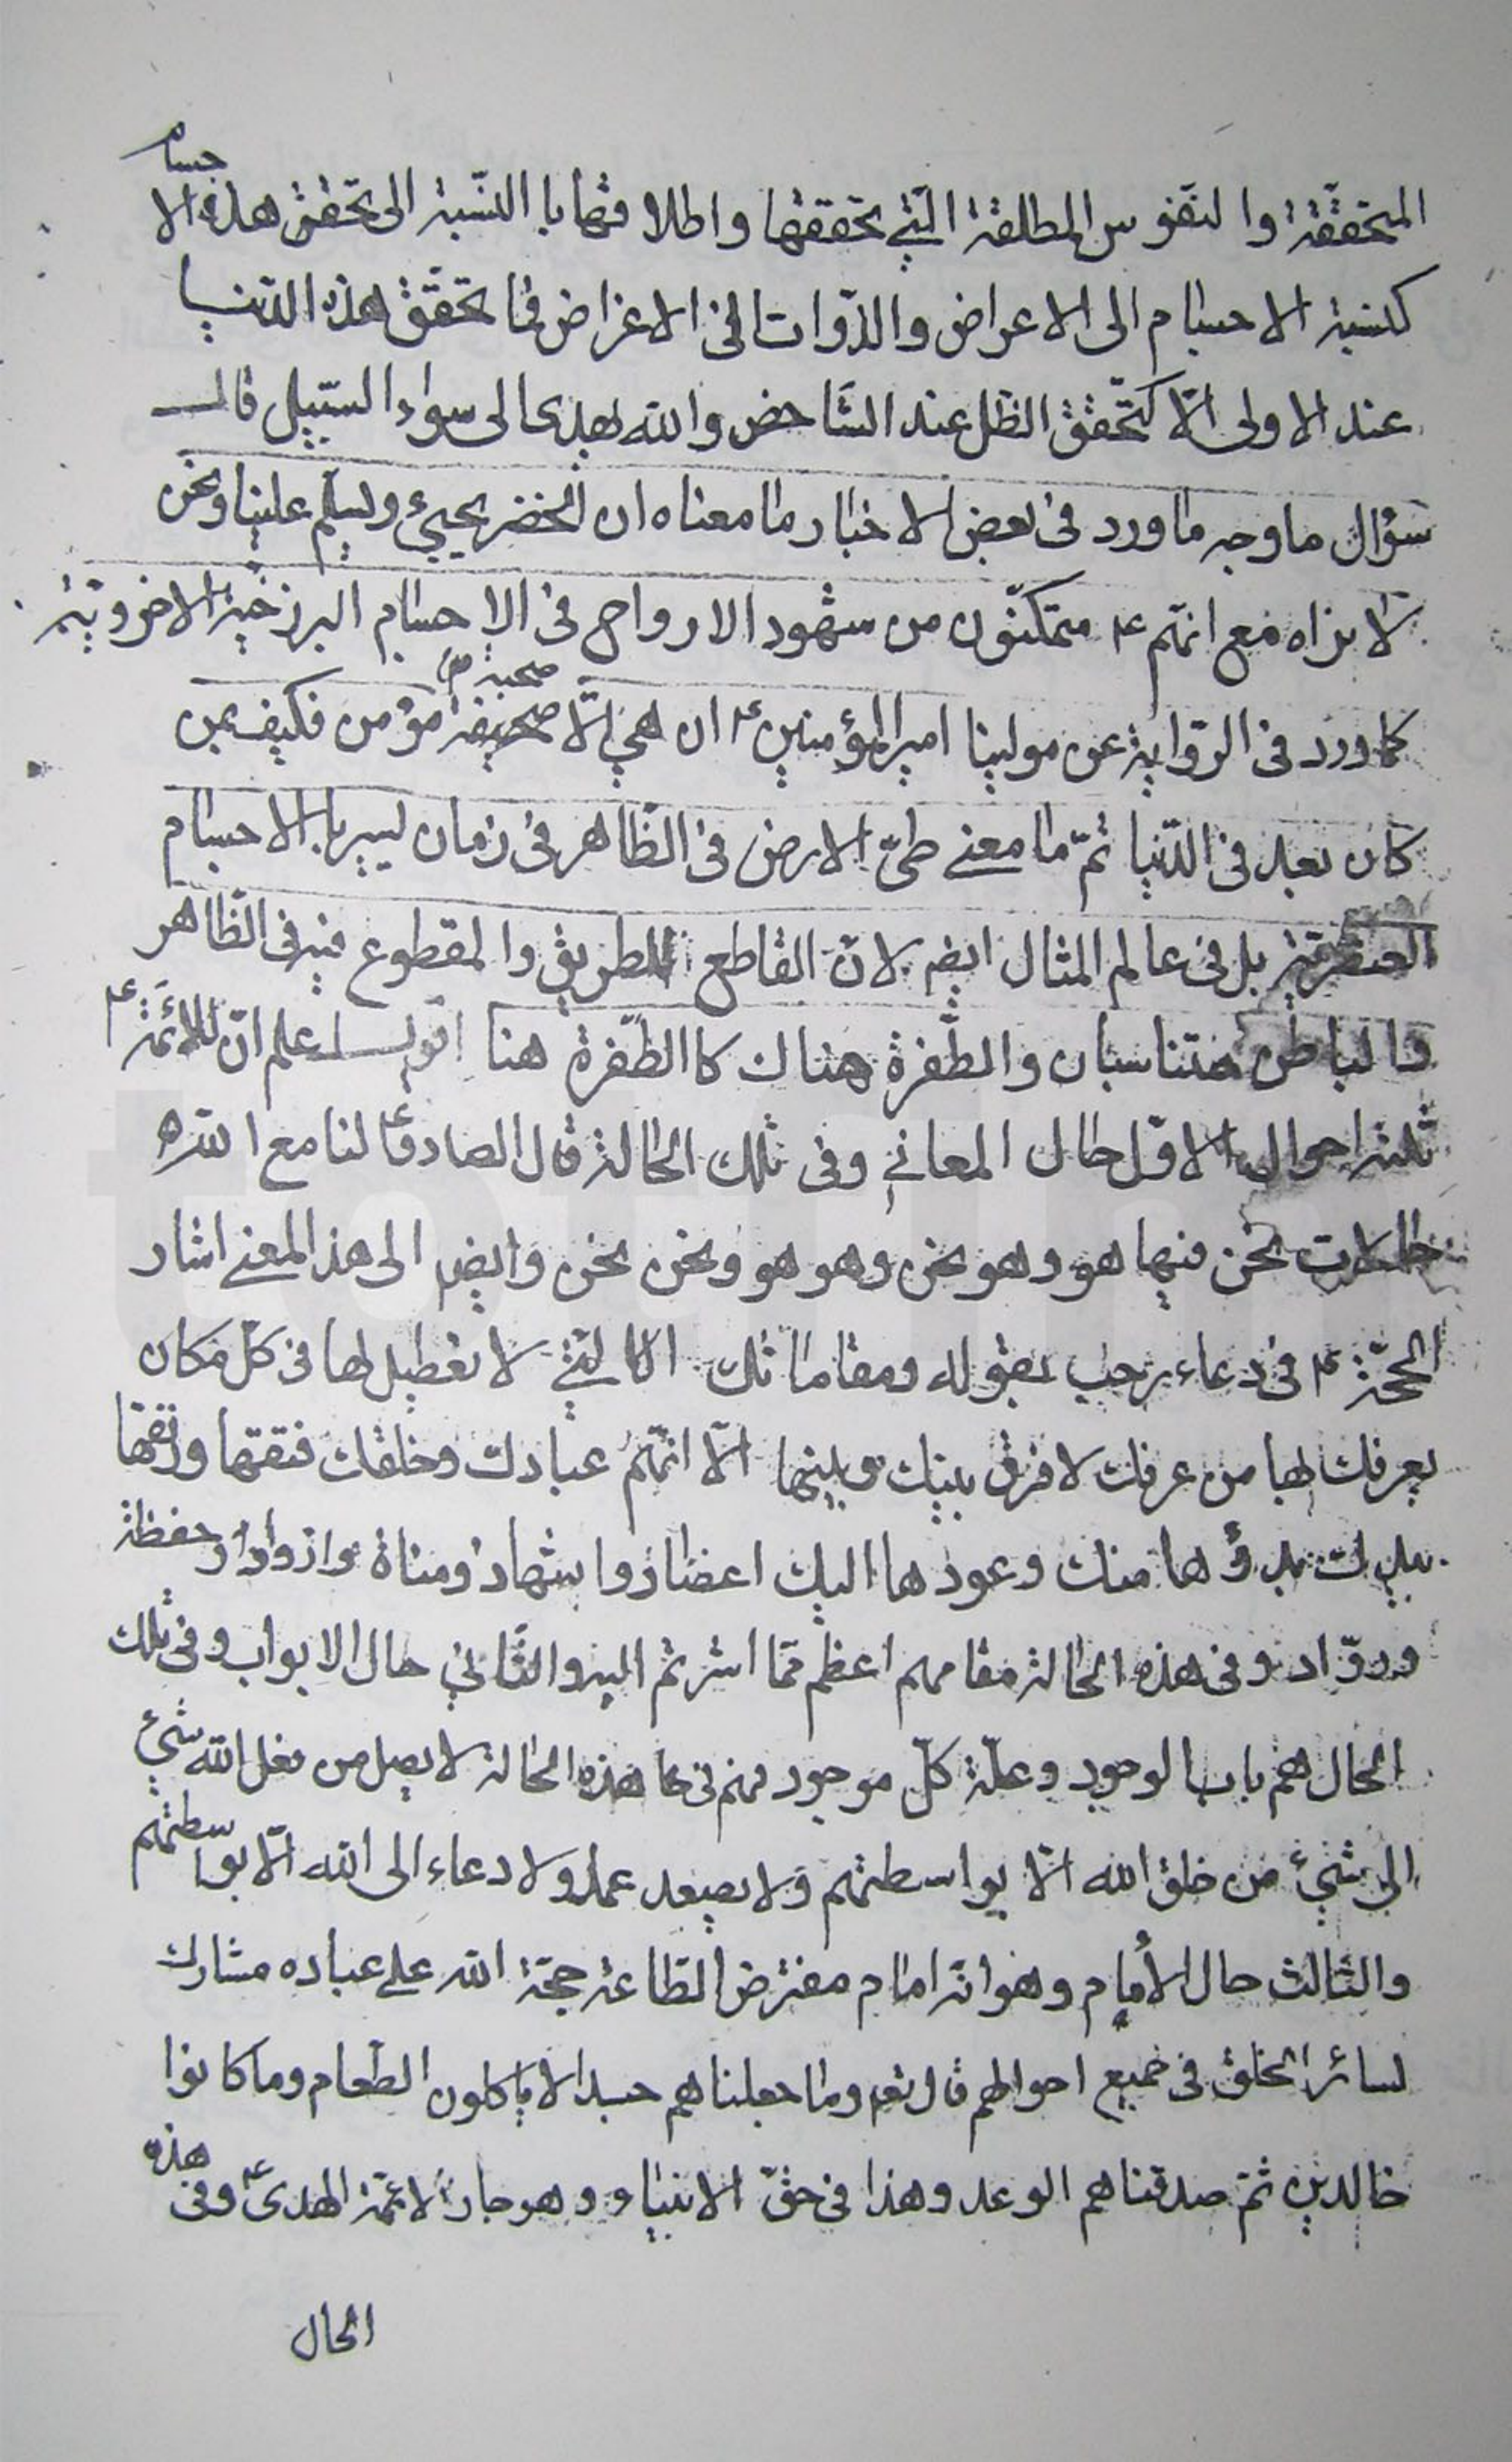 المتحققة والنفوس المطلقة التي تحققها واطلاقها با النسبة الى تحقق هذه الاجسام
كنسبة الاجسام الى الاعراض والذوات الى الاعراض فما تحقق هذه الدنيا
عند الاولى الا كتحقق الظل عند الشاخص والله يهدى الى سواء السبيل قال
سؤال ما وجه ما ورد فى بعض الاخبار ما معناه ان الخضر يجيئ ويسلم علينا ونحن
لا نراه مع انهم ع متمكنون من شهود الارواح فى الاجسام البرزخية الاخروية
كما ورد فى الرواية عن مولينا امير المؤمنين ع ان هى الا صحبة مؤمن فكيف بمن
كان بعد فى الدنيا ثم ما معنى طى الارض فى الظاهر فى زمان يسير با الاجسام
العنصرية بل فى عالم المثال ايضا لان القاطع للطريق والمقطوع فيه فى الظاهر
والباطن متناسبان والطفرة هناك كا الطفرة هنا اقول اعلم ان للائمة ع
ثلثة احوال الاول حال المعانى وفى تلك الحالة قال الصادق ع لنا مع الله
حالات نحن فيها هو وهو نحن وهو هو ونحن نحن وايضا الى هذا المعنى اشار
الحجة ع فى دعاء رجب بقوله ومقاماتك التى لا تعطيل لها فى كل مكان
يعرفك بها من عرفك لا فرق بينك وبينها الا انهم عبادك وخلقك فتقها ورتقها
بيدك بدؤها منك وعودها اليك اعضاد واشهاد ومناة واذواد وحفظة
ورواد وفى هذه الحالة مقامهم اعظم مما اشرتم اليه والثانى حال الابواب وفى تلك
الحال هم باب الوجود وعلة كل موجود فهم فى هذه الحالة لا يصل من فعل الله شيئ
الى شيئ من خلق الله الا بواسطتهم ولا يصعد عمل ولا دعاء الى الله الا بواسطتهم
والثالث حال الأمام وهو انه امام مفترض الطاعة حجة الله على عباده مشارك
لسائر الخلق فى جميع احوالهم قال تعم وما جعلناهم جسدا لا ياكلون الطعام وما كانوا
خالدين ثم صدقناهم الوعد وهذا فى حق الانبياء وهو جار لائمة الهدى ع وفى هذه
الحال